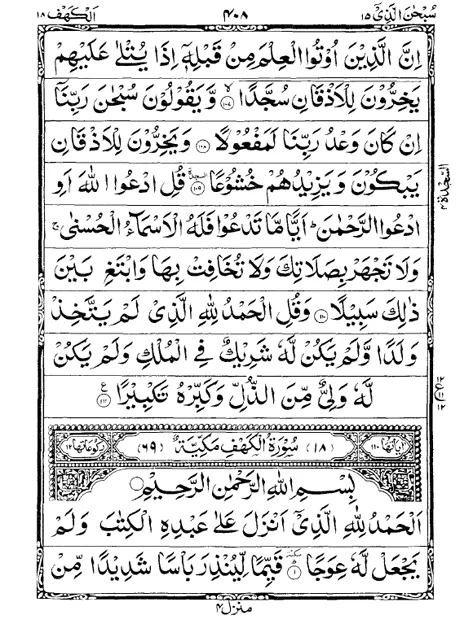 سُبۡحٰنَ الَّذِيۡۤ ١٥ ٤٠٨ الۡكَهۡف ١٨
اِنَّ الَّذِيۡنَ اُوۡتُوا الۡعِلۡمَ مِنۡ قَبۡلِهٖۤ اِذَا يُتۡلٰى عَلَيۡهِمۡ
يَخِرُّوۡنَ لِلۡاَذۡقَانِ سُجَّدًا ۙ‏﴿۱۰۷﴾ وَّيَقُوۡلُوۡنَ سُبۡحٰنَ رَبِّنَاۤ
اِنۡ كَانَ وَعۡدُ رَبِّنَا لَمَفۡعُوۡلًا‏ ﴿۱۰۸﴾ وَيَخِرُّوۡنَ لِلۡاَذۡقَانِ
يَبۡكُوۡنَ وَيَزِيۡدُهُمۡ خُشُوۡعًا ﴿۱۰۹﴾ قُلِ ادۡعُوا اللّٰهَ اَوِ
ادۡعُوا الرَّحۡمٰنَ ؕ اَيًّا مَّا تَدۡعُوۡا فَلَهُ الۡاَسۡمَآءُ الۡحُسۡنٰى ۚ
وَلَا تَجۡهَرۡ بِصَلَاتِكَ وَلَا تُخَافِتۡ بِهَا وَابۡتَغِ بَيۡنَ
ذٰلِكَ سَبِيۡلًا‏ ﴿۱۱۰﴾ وَقُلِ الۡحَمۡدُ لِلّٰهِ الَّذِىۡ لَمۡ يَتَّخِذۡ
وَلَدًا وَّلَمۡ يَكُنۡ لَّهٗ شَرِيۡكٌ فِى الۡمُلۡكِ وَلَمۡ يَكُنۡ
لَّهٗ وَلِىٌّ مِّنَ الذُّلِّ وَكَبِّرۡهُ تَكۡبِيۡرًا ﴿۱۱۱﴾
اٰيَاتُهَا ١١٠ (١٨) سُوۡرَةُ الۡكَهۡفِ مَكِّيَّةٌ (٦٩) رُكُوۡعَاتُهَا ١٢
بِسۡمِ اللّٰهِ الرَّحۡمٰنِ الرَّحِيۡمِ
اَلۡحَمۡدُ لِلّٰهِ الَّذِىۡۤ اَنۡزَلَ عَلٰى عَبۡدِهِ الۡكِتٰبَ وَلَمۡ
يَجۡعَلْ لَّهٗ عِوَجًا ﴿۱﴾ قَيِّمًا لِّيُنۡذِرَ بَاۡسًا شَدِيۡدًا مِّنۡ
منزل ٤
السجدة ٤
ع ١٢